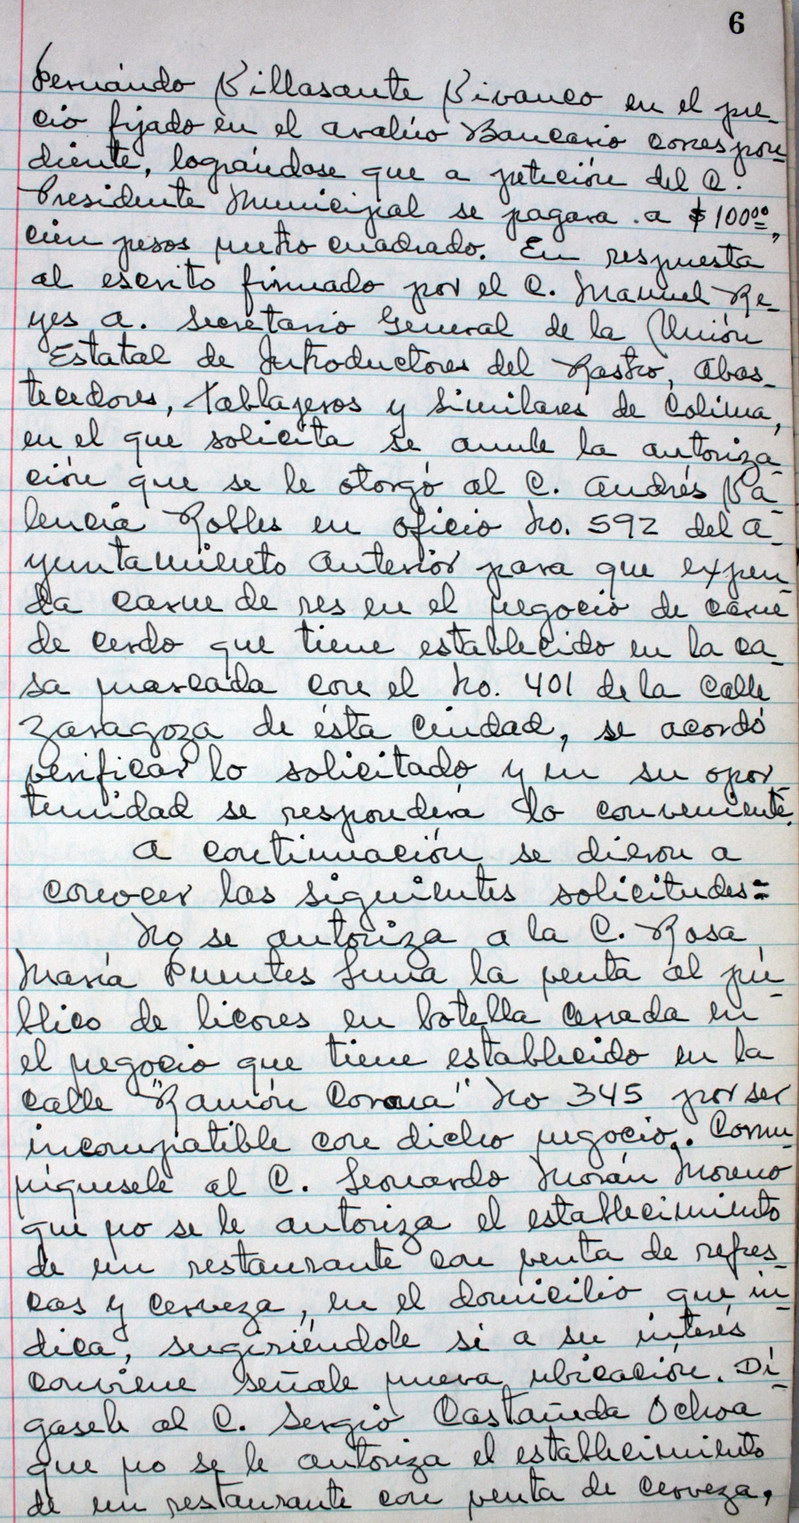 6
Fernándo Villasante Vivanco en el pre-
cio fijado en el avalúo Bancario correspon-
diente, lográndose que a petición del C.
Presidente Municipal se pagara a $ 100.00,
cien pesos metro cuadrado. En respuesta
al escrito firmado por el C. Manuel Re-
yes A. Secretario General de la Unión
Estatal de Introductores del Rastro, Abas-
tecedores, Tablajeros y Similares de Colima,
en el que solicita se anule la autoriza-
ción que se le otorgó al C. Andrés Va-
lencia Robles en oficio No. 592 del A-
yuntamiento Anterior para que expen-
da carne de res en el negocio de carne
de cerdo que tiene establecido en la ca-
sa marcada con el No. 401 de la Calle
Zaragoza de ésta Ciudad, se acordó
verificar lo solicitado y en su opor-
tunidad se responderá lo conveniente.
A continuación se dieron a
conocer las siguientes solicitudes:
No se autoriza a la C. Rosa
María Puentes Luna la venta al pú-
blico de licores en botella cerrada en
el negocio que tiene establecido en la
calle "Ramón Corona" No 345 por ser
incompatible con dicho negocio. Comu-
níquesele al C. Leonardo Morán Moreno
que no se le autoriza el establecimiento
de un restaurante con venta de refres-
cos y cerveza, en el domicilio que in-
dica, sugiriéndole si a su interés
conviene señale nueva ubicación. Dí-
gasele al C. Sergio Castañeda Ochoa
que no se le autoriza el establecimiento
de un restaurante con venta de cerveza,